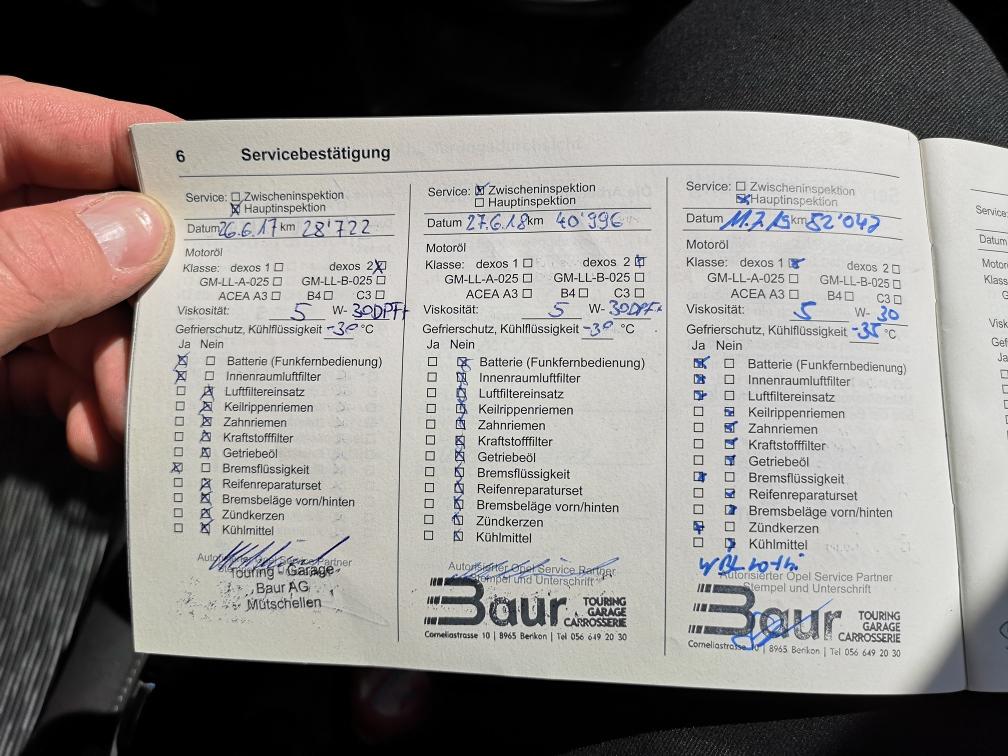 6 Servicebestätigung
Service: Zwischeninspektion
Hauptinspektion
Datum 26.6.17 km 28'722
Motoröl
Klasse: dexos 1 dexos 2
GM-LL-A-025 GM-LL-B-025
ACEA A3 B4 C3
Viskosität: 5 W- 30DPF
Gefrierschutz, Kühlflüssigkeit -30 °C
Ja Nein
Batterie (Funkfernbedienung)
Innenraumluftfilter
Luftfiltereinsatz
Keilrippenriemen
Zahnriemen
Kraftstofffilter
Getriebeöl
Bremsflüssigkeit
Reifenreparaturset
Bremsbeläge vorn/hinten
Zündkerzen
Kühlmittel
Autorisierter Opel Service Partner
Touring Garage
Baur AG
Mutschellen
Service: Zwischeninspektion
Hauptinspektion
Datum 27.6.18 km 40'996
Motoröl
Klasse: dexos 1 dexos 2
GM-LL-A-025 GM-LL-B-025
ACEA A3 B4 C3
Viskosität: 5 W- 30DPF
Gefrierschutz, Kühlflüssigkeit -30 °C
Ja Nein
Batterie (Funkfernbedienung)
Innenraumluftfilter
Luftfiltereinsatz
Keilrippenriemen
Zahnriemen
Kraftstofffilter
Getriebeöl
Bremsflüssigkeit
Reifenreparaturset
Bremsbeläge vorn/hinten
Zündkerzen
Kühlmittel
Autorisierter Opel Service Partner
Stempel und Unterschrift
Baur TOURING
GARAGE
CARROSSERIE
Corneliastrasse 10 | 8965 Berikon | Tel 056 649 20 30
Service: Zwischeninspektion
Hauptinspektion
Datum 11.7.19 km 52'047
Motoröl
Klasse: dexos 1 dexos 2
GM-LL-A-025 GM-LL-B-025
ACEA A3 B4 C3
Viskosität: 5 W- 30
Gefrierschutz, Kühlflüssigkeit -35 °C
Ja Nein
Batterie (Funkfernbedienung)
Innenraumluftfilter
Luftfiltereinsatz
Keilrippenriemen
Zahnriemen
Kraftstofffilter
Getriebeöl
Bremsflüssigkeit
Reifenreparaturset
Bremsbeläge vorn/hinten
Zündkerzen
Kühlmittel
Autorisierter Opel Service Partner
Stempel und Unterschrift
Baur TOURING
GARAGE
CARROSSERIE
Corneliastrasse 10 | 8965 Berikon | Tel 056 649 20 30
Service:
Datum